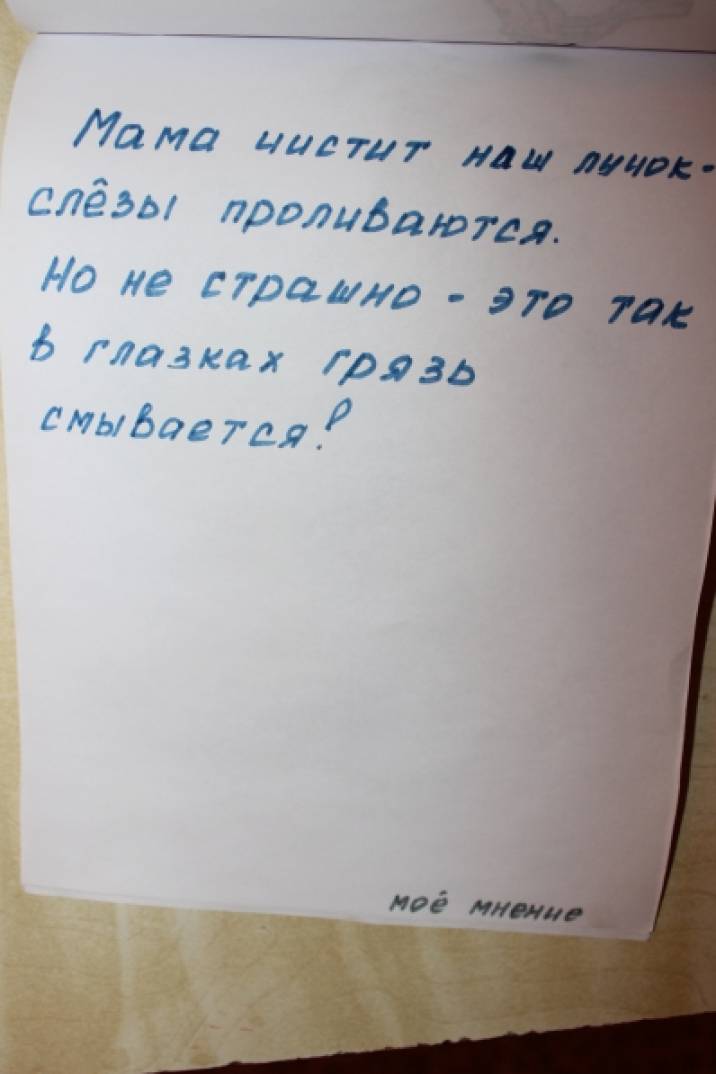 Мама чистит наш лучок-
слёзы проливаются.
Но не страшно - это так
в глазках грязь
смывается!
моё мнение